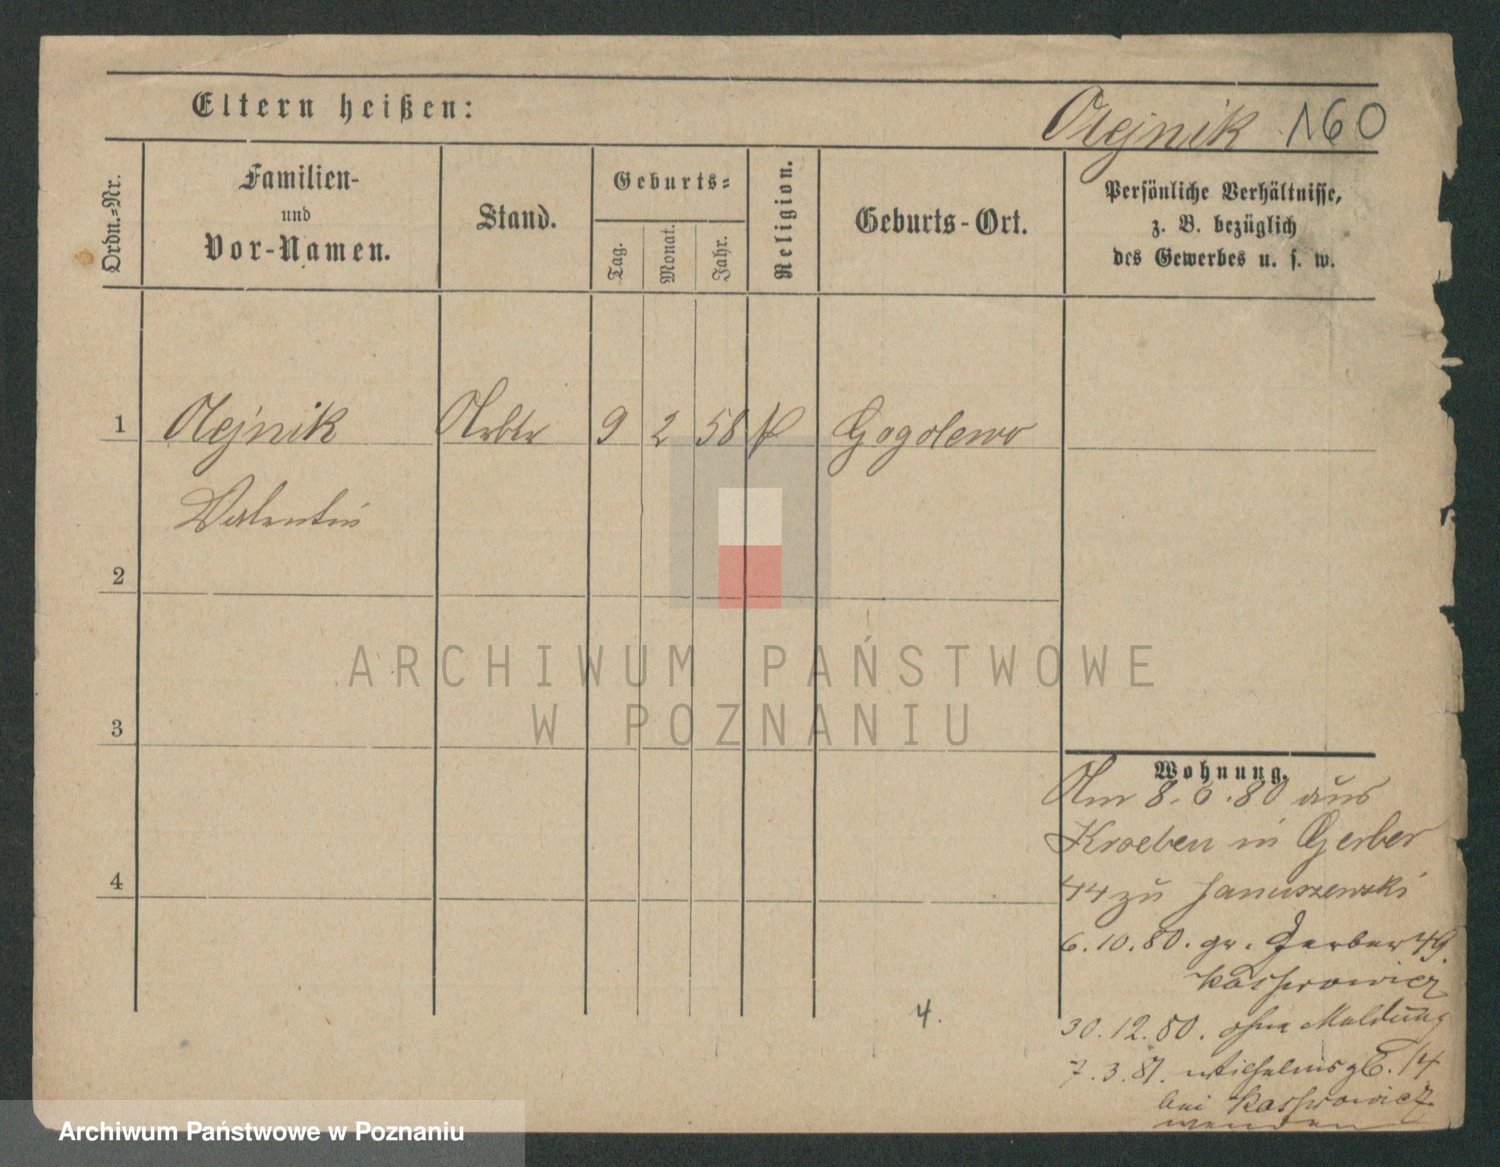 Eltern heißen:
Olejnik 160
Ordn.-Nr.
Familien-
und
Vor-Namen.
Stand.
Geburts-
Tag.
Monat.
Jahr.
Religion.
Geburts-Ort.
Persönliche Verhältnisse,
z. B. bezüglich
des Gewerbes u. s. w.
1 Olejnik Arbtr 9 2 58 k Gogolewo
Valentin
2
3
4
Wohnung.
Am 8. 6. 80 aus
Kroeben in Gerber
44 zu Januszewski
6.10.80. gr. Gerber 49.
Kasprowicz
30.12.80. ohne Meldung
7.3.81. Wilhelmspl. 14
bei Kasprowicz
wenden
4.
ARCHIWUM PAŃSTWOWE
W POZNANIU
Archiwum Państwowe w Poznaniu